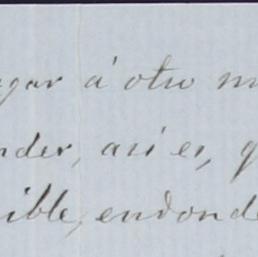 gar á otro m
nder, asi es, q
ible, endonde